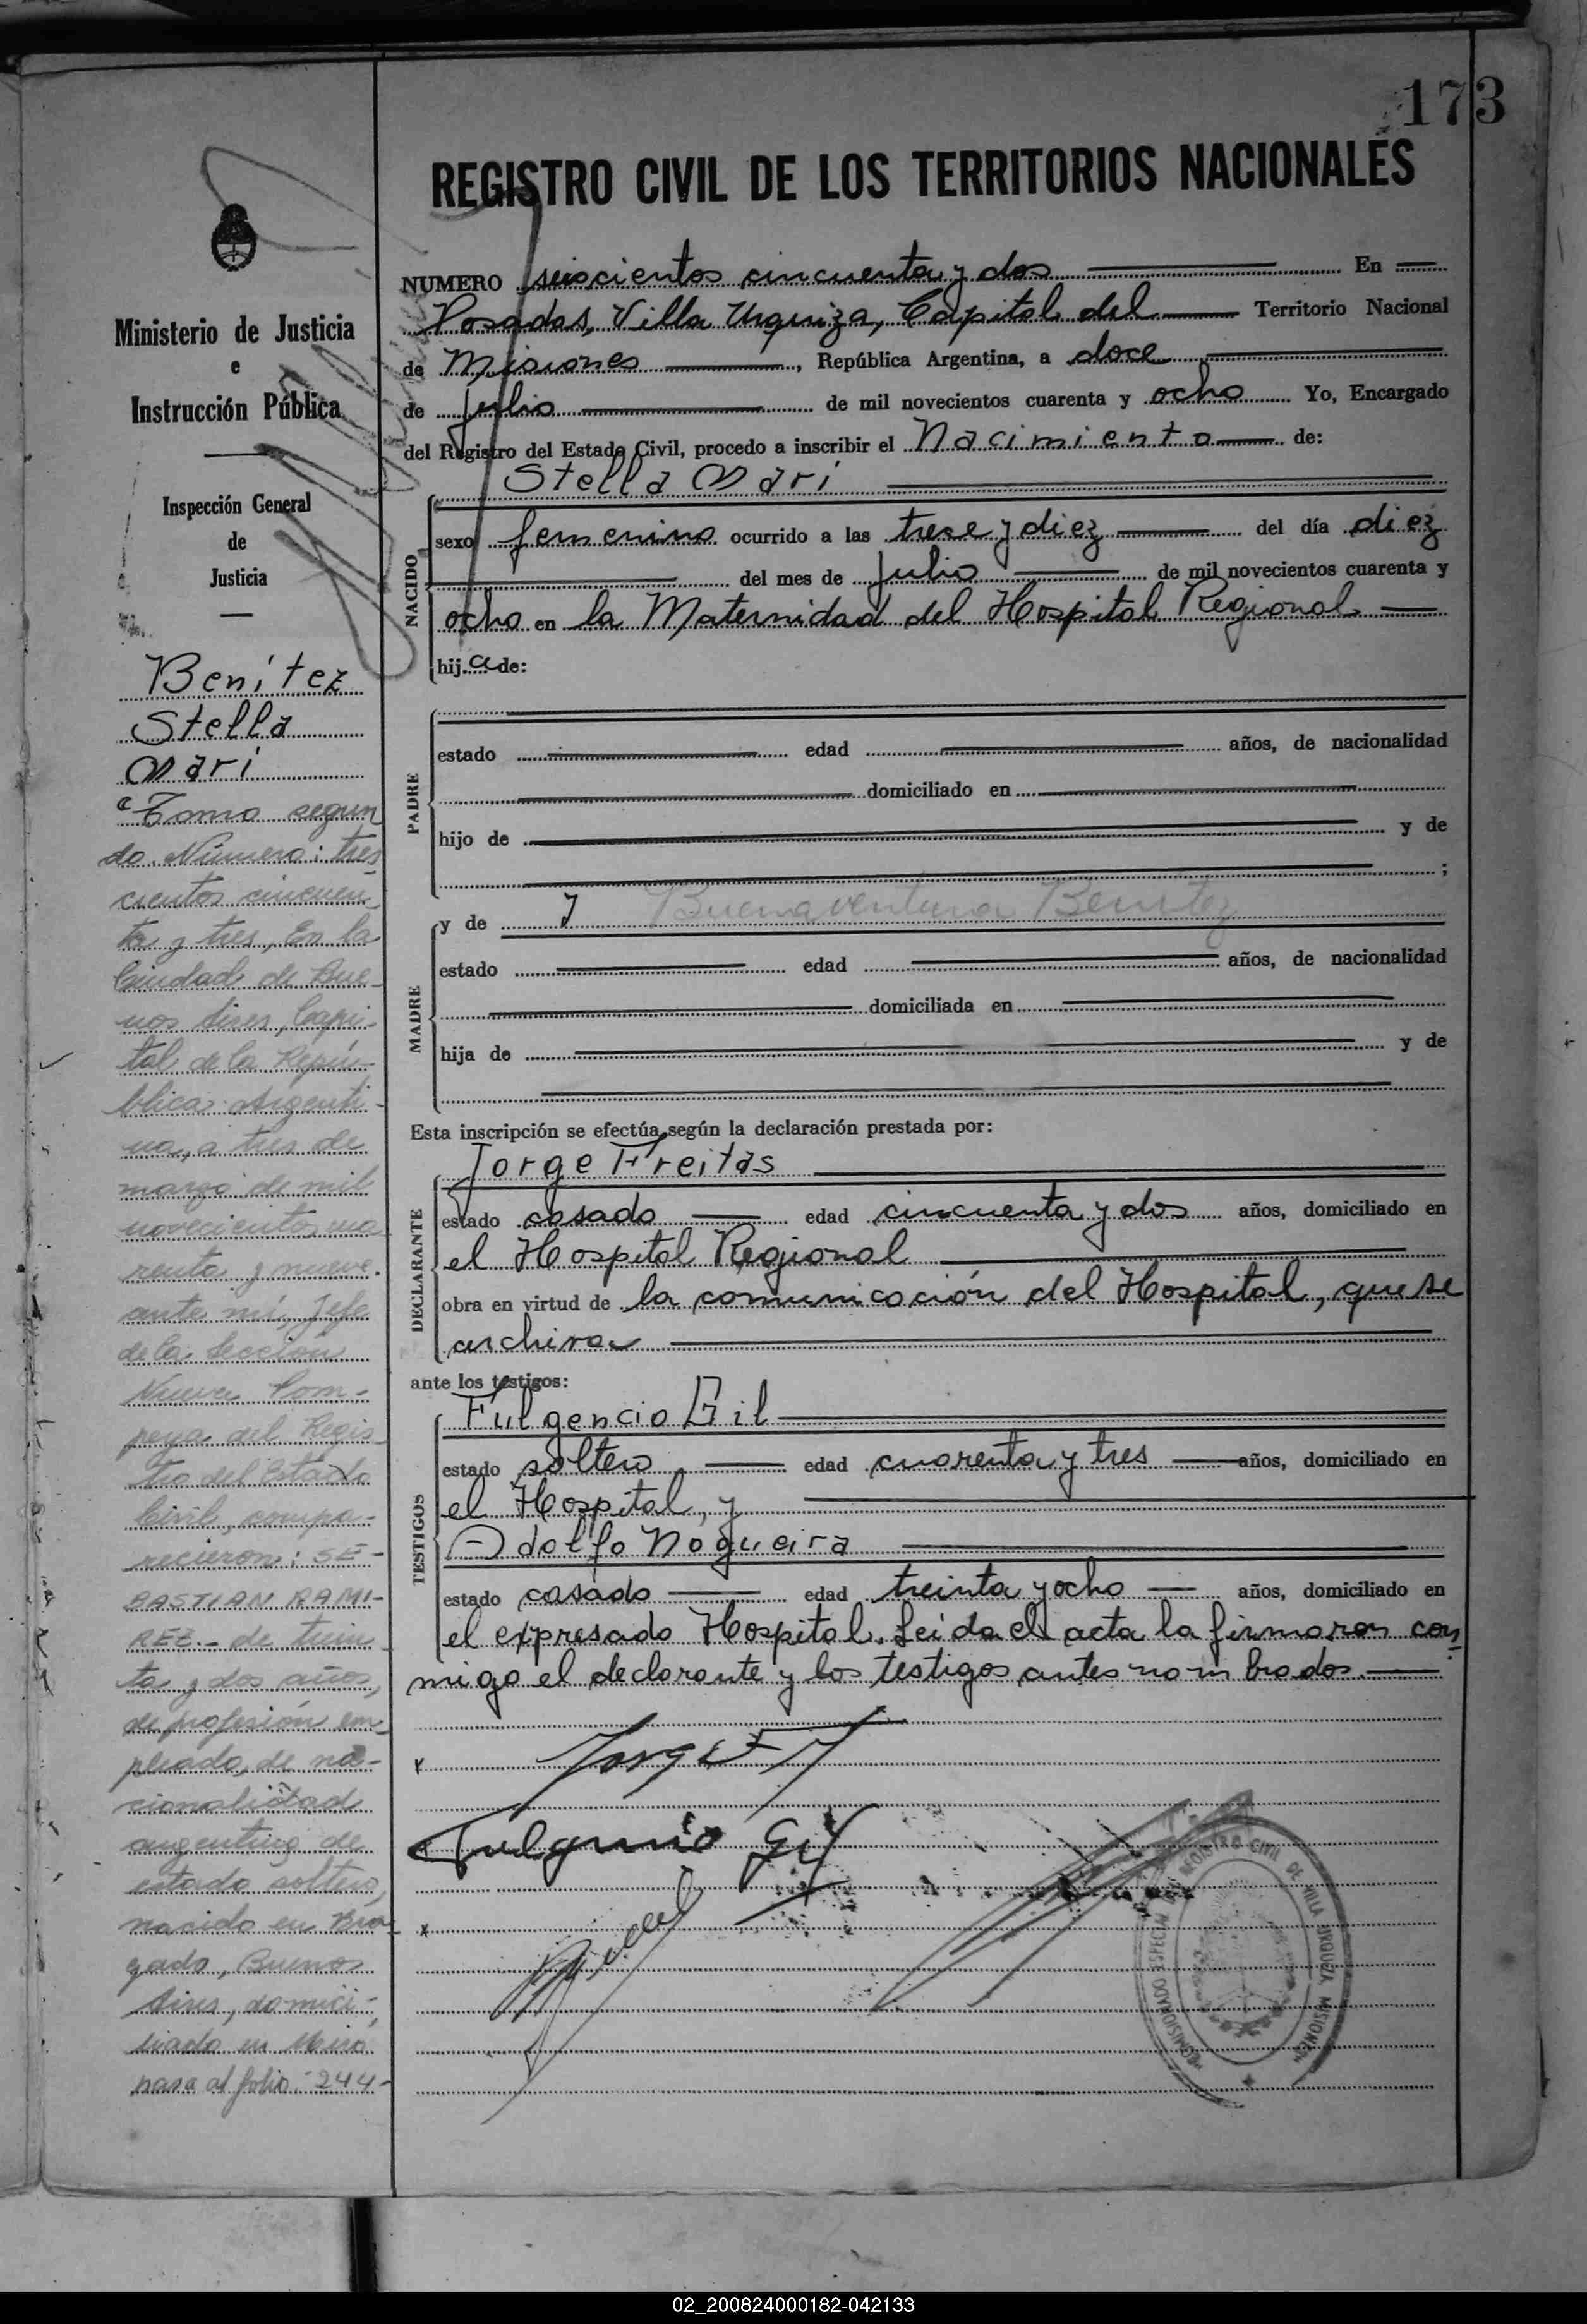 173
REGISTRO CIVIL DE LOS TERRITORIOS NACIONALES
Ministerio de Justicia
e
Instrucción Pública
Inspección General
de
Justicia
Benítez
Stella
Mari
Tomo segun
do. Número: tres
cientos cincuen
ta y tres, En la
Ciudad de Bue-
nos Aires, Capi-
tal de la Repú-
blica Argenti-
na, a tres de
marzo de mil
novecientos cua
renta y nueve.
ante mí, Jefe
de la Sección
Nueva Pom-
peya del Regis
tro del Estado
Civil, compa-
recieron: SE-
BASTIAN RAMI-
REZ.- de trein
ta y dos años,
de profesión em
pleado, de na-
cionalidad
argentina de
estado soltero,
nacido en Bra
gado, Buenos
Aires, domici-
liado en Miró
pasa al folio: 244-
NUMERO seiscientos cincuenta y dos En
Posadas, Villa Urquiza, Capital del Territorio Nacional
de Misiones, República Argentina, a doce
de julio de mil novecientos cuarenta y ocho Yo, Encargado
del Registro del Estado Civil, procedo a inscribir el Nacimiento de:
Stella Mari
NACIDO
sexo femenino ocurrido a las trece y diez del día diez
del mes de julio de mil novecientos cuarenta y
ocho en la Maternidad del Hospital Regional
hija de:
PADRE
estado edad años, de nacionalidad
domiciliado en
hijo de y de
;
MADRE
y de Buenaventura Benitez
estado edad años, de nacionalidad
domiciliada en
hija de y de
Esta inscripción se efectúa según la declaración prestada por:
Jorge Freitas
DECLARANTE
estado casado edad cincuenta y dos años, domiciliado en
el Hospital Regional
obra en virtud de la comunicación del Hospital, que se
archiva
ante los testigos:
Fulgencio Gil
TESTIGOS
estado soltero edad cuarenta y tres años, domiciliado en
el Hospital, y
Adolfo Nogueira
estado casado edad treinta y ocho años, domiciliado en
el expresado Hospital. Leida el acta la firmaron con
migo el declarante y los testigos antes nombrados.
Jorge F
Fulgencio Gil
COMISIONADO ESPECIAL DEL REGISTRO CIVIL DE VILLA URQUIZA MISIONES
02_200824000182-042133